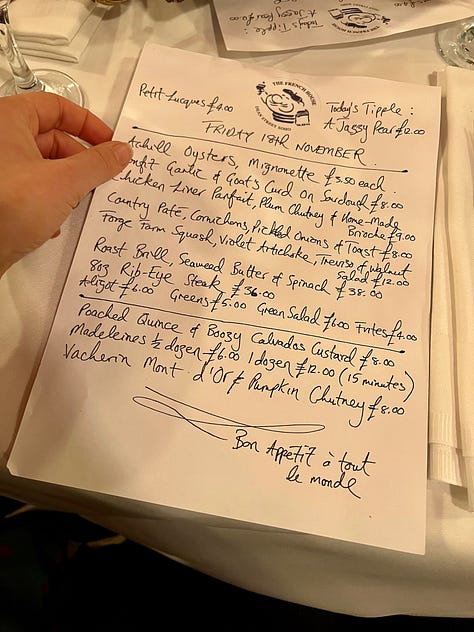 THE FRENCH HOUSE
DEAN STREET SOHO
Petit Lucques £4.00
Today's Tipple :
A Jazzy Pear £12.00
FRIDAY 18TH NOVEMBER
Achill Oysters, Mignonette £3.50 each.
onfit Garlic & Goat's Curd on Sourdough £8.00
Chicken Liver Parfait, Plum Chutney & Home-Made Brioche £9.00
Country Paté, Cornichons, Pickled Onions & Toast £8.00
Forge Farm Squash, Violet Artichoke, Treviso & Walnut Salad £12.00
Roast Brill, Seaweed Butter & Spinach £38.00
8oz Rib-Eye Steak £36.00
Aligot £6.00 Greens £5.00 Green Salad £6.00 Frites £4.00
Poached Quince & Boozy Calvados Custard £8.00
Madeleines ½ dozen £6.00 1 dozen £12.00 (15 minutes)
Vacherin Mont d'Or & Pumpkin Chutney £8.00
Bon Appétit à tout
le monde
Today's Tipple :
A Jazzy Pear £12.00